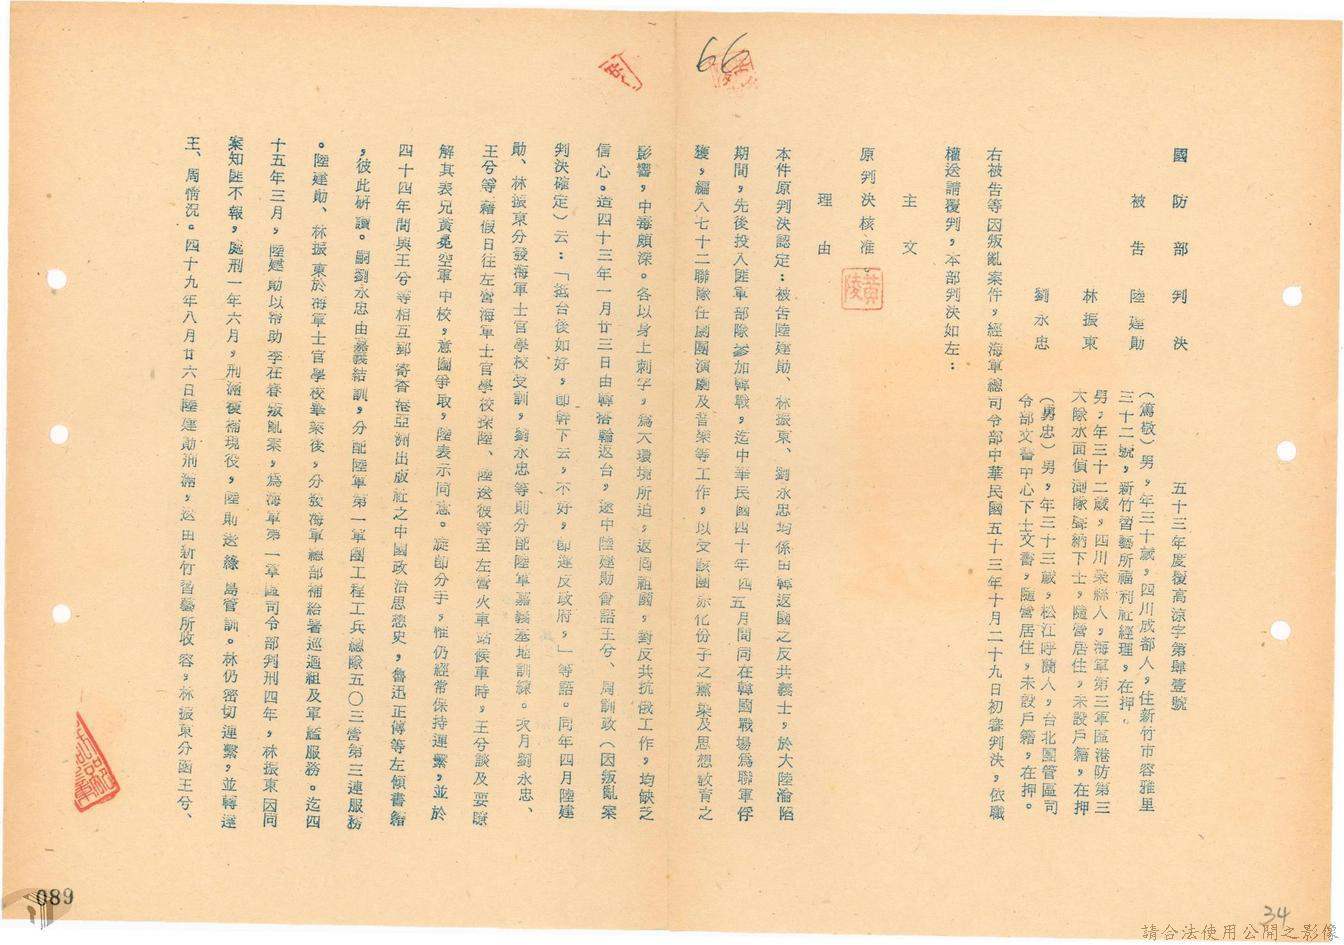 66
國防部判決　五十三年度覆高涼字第肆壹號
被告　陸建勛　（篤敬）男，年三十歲，四川成都人，住新竹市容雅里
三十二號，新竹習藝所福利社經理，在押。
林振東　男，年三十二歲，四川榮縣人，海軍第三軍區港防第三
大隊水面偵測隊聲納下士，隨營居住，未設戶籍，在押
劉永忠　（勇忠）男，年三十三歲，松江呼蘭人，台北團管區司
令部文書中心下士文書，隨營居住，未設戶籍，在押。
右被告等因叛亂案件，經海軍總司令部中華民國五十三年十月二十九日初審判決，依職
權送請覆判，本部判決如左：
主文
原判決核准。
黃陵
理由
本件原判決認定：被告陸建勛、林振東、劉永忠均係由韓返國之反共義士，於大陸淪陷
期間，先後投入匪軍部隊參加韓戰，迄中華民國四十年四五月間同在韓國戰場為聯軍俘
獲，編入七十二聯隊任劇團演劇及音樂等工作，以受該團赤化份子之薰染及思想教育之
影響，中毒頗深。各以身上刺字，為大環境所迫，返回祖國，對反共抗俄工作，均缺乏
信心。迨四十三年一月廿三日由韓搭輪返台，途中陸建勛曾語王兮、周訓政（因叛亂案
判決確定）云：「抵台後如好，即幹下去，不好，即違反政府，」等語。同年四月陸建
勛、林振東分發海軍士官學校受訓，劉永忠等則分配陸軍嘉義基地訓練。次月劉永忠、
王兮等藉假日往左營海軍士官學校探陸、陸送彼等至左營火車站候車時，王兮談及要瞭
解其表兄黃冕空軍中校，意圖爭取，陸表示同意。旋即分手，惟仍經常保持連繫，並於
四十四年間與王兮等相互郵寄香港亞洲出版社之中國政治思想史，魯迅正傳等左傾書籍
，彼此研讀。嗣劉永忠由嘉義結訓，分配陸軍第一軍團工程工兵總隊五〇三營第三連服務
。陸建勛、林振東於海軍士官學校畢業後，分發海軍總部補給署巡迴組及軍艦服務。迄四
十五年三月，陸建勛以幫助李在春叛亂案，為海軍第一軍區司令部判刑四年，林振東因同
案知匪不報，處刑一年六月，刑滿復補現役，陸則送綠島管訓。林仍密切連繫，並轉達
王、周情況。四十九年八月廿六日陸建勛刑滿，送由新竹習藝所收容，林振東分函王兮、
089
34
請合法使用公開之影像